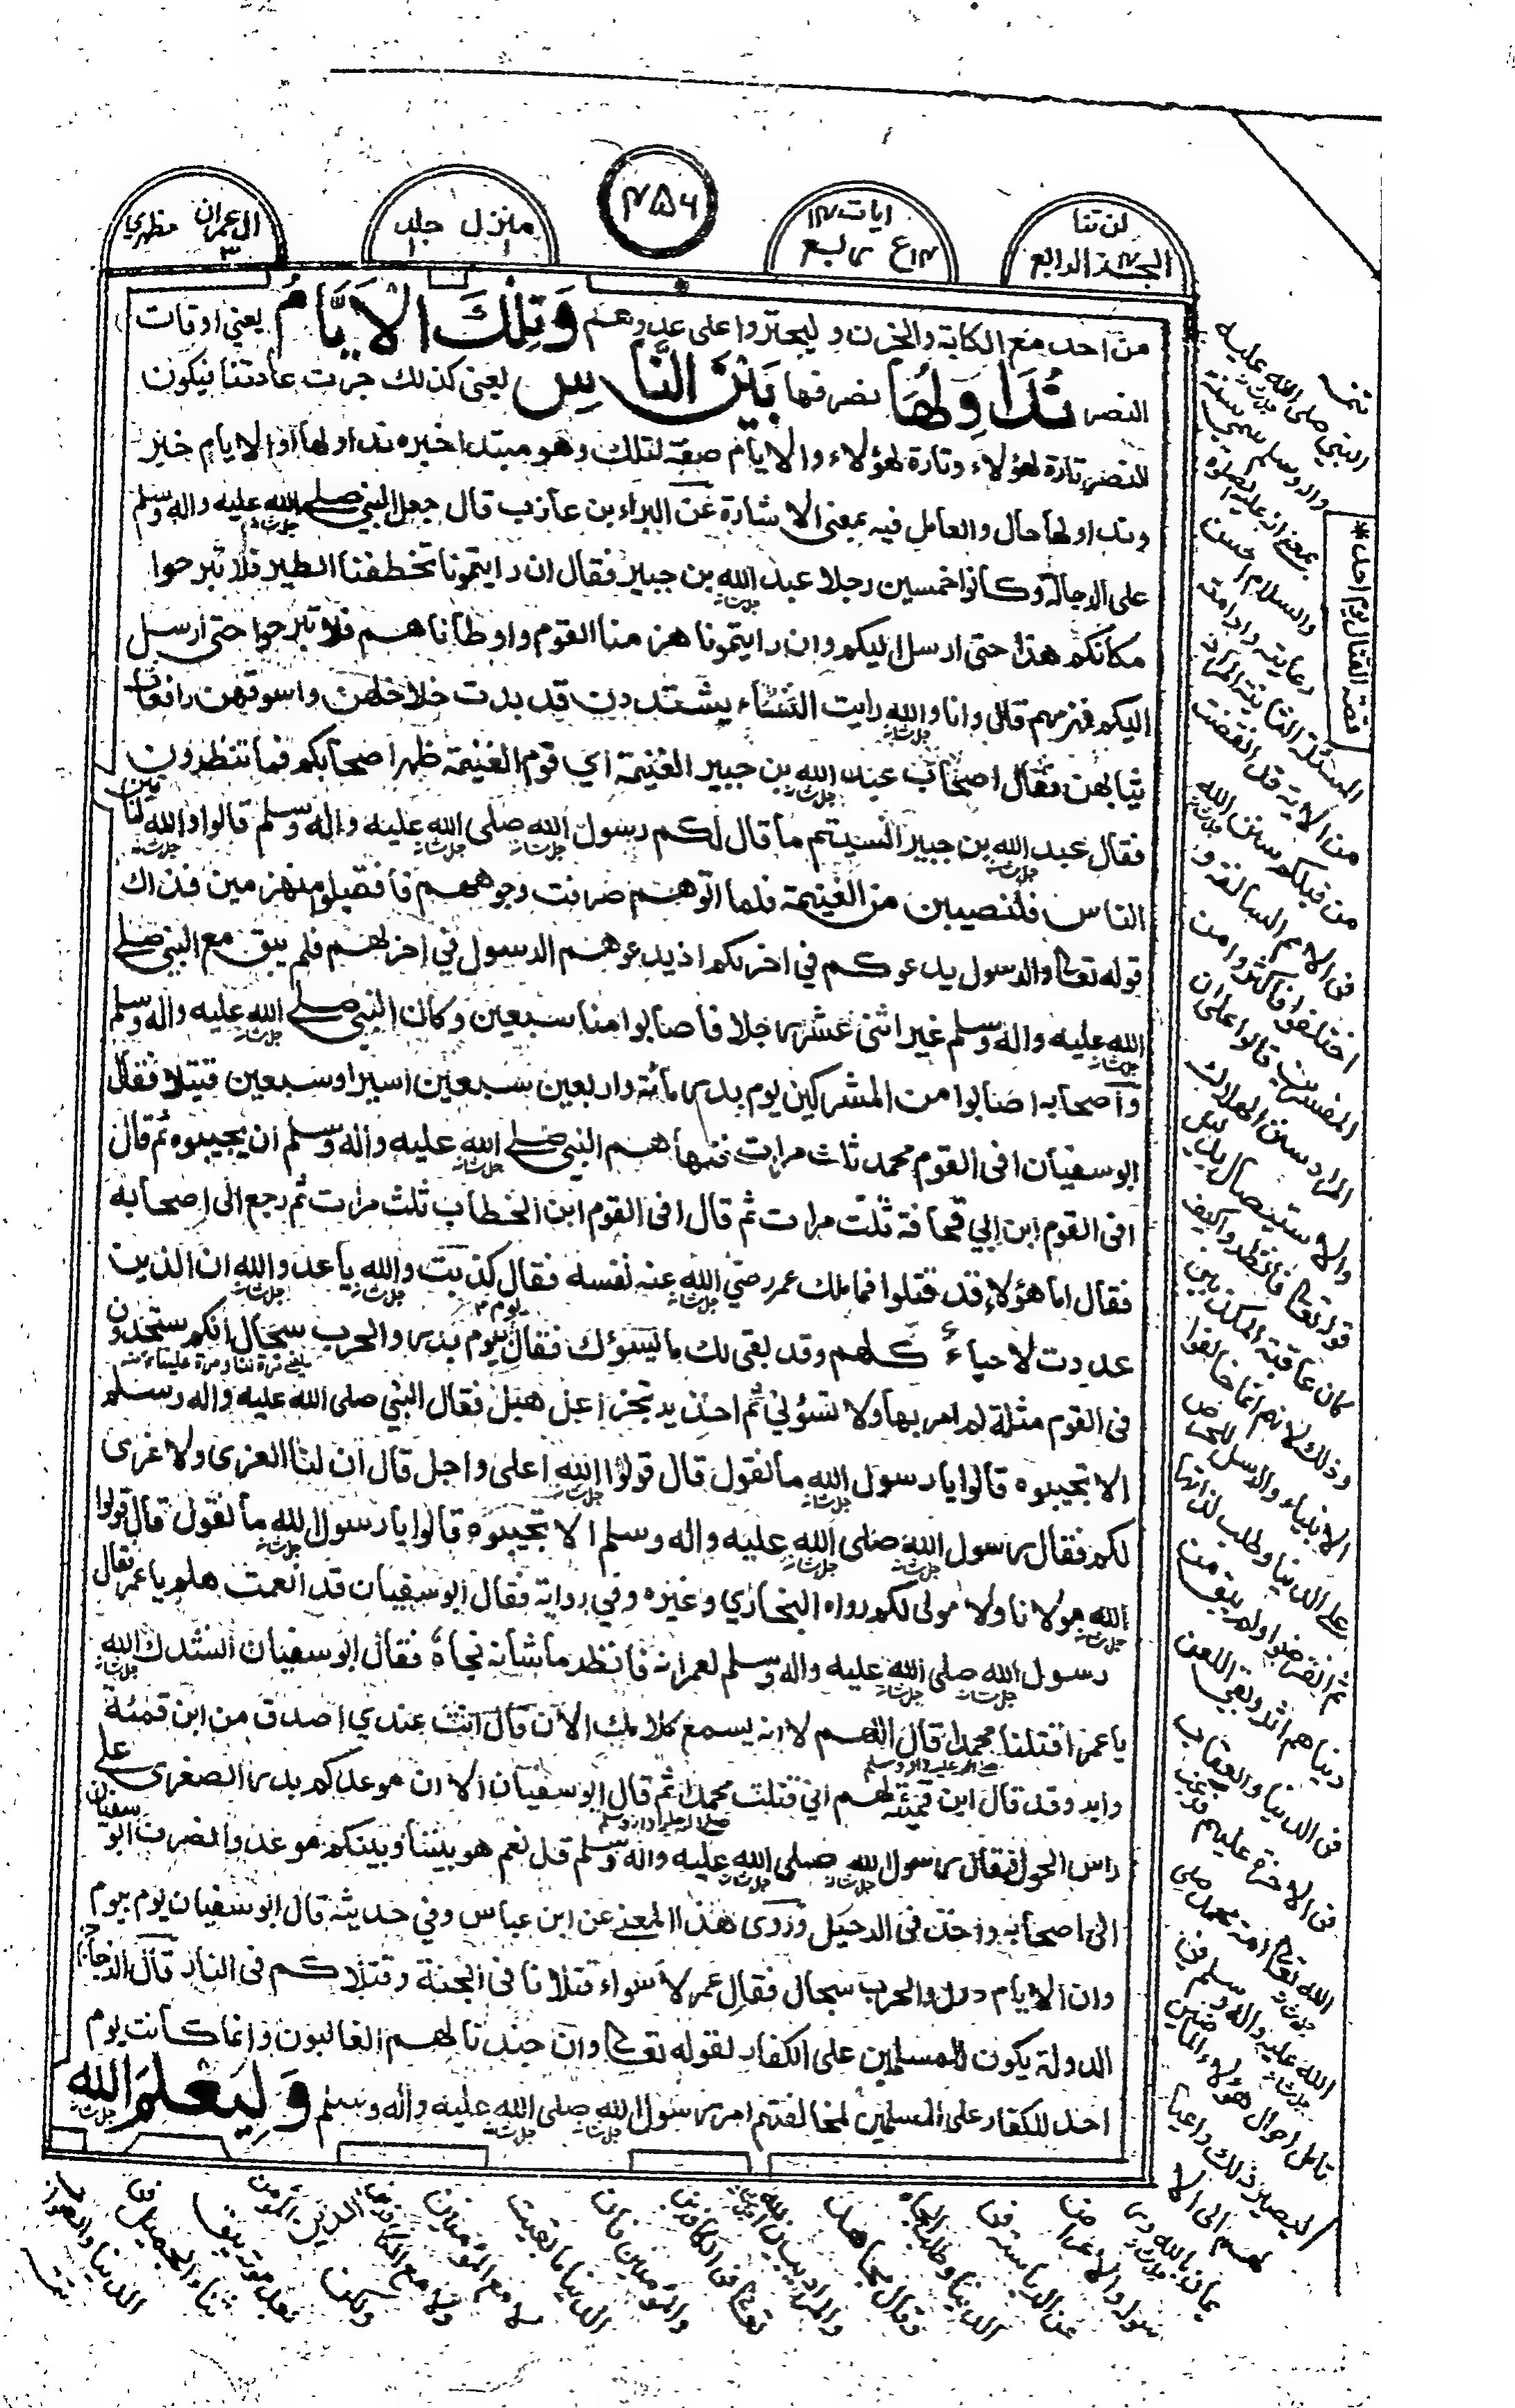 لن تنا
الجزء الرابع
ايات
ع ربع
۴۵۶
منزل جلد
۱ ۱
ال عمران مظهري
۳
من احد مع الكابة والحزن و ليجتزوا على عدوهم وَتِلْكَ الْاَيَّامُ يعني اوقات
النصر نُدَاوِلُهَا نصرفها بَيْنَ النَّاسِ يعني كذلك جرت عادتنا فيكون
النصر تارة لهؤلاء وتارة لهؤلاء والايام صفة لتلك وهو مبتدا خبره نداولها او الايام خبر
ونداولها حال والعامل فيه بمعنى الاشارة عن البراء بن عازب قال جعل النبي صلى الله عليه واله وسلم
على الرجالة وكانوا خمسين رجلا عبد الله بن جبير فقال ان رايتمونا تخطفنا الطير فلا تبرحوا
مكانكم هذا حتى ارسل اليكم وان رايتمونا هزمنا القوم واوطأناهم فلا تبرحوا حتى ارسل
اليكم فهزمهم قال وانا والله رايت النساء يشتددن قد بدت خلاخلهن واسوقهن رافعات
ثيابهن فقال اصحاب عبد الله بن جبير الغنيمة اي قوم الغنيمة ظهر اصحابكم فما تنتظرون
فقال عبد الله بن جبير انسيتم ما قال لكم رسول الله صلى الله عليه واله وسلم قالوا والله لناتين
الناس فلنصيبن من الغنيمة فلما اتوهم صرفت وجوههم فاقبلوا منهزمين فذاك
قوله تعالى والرسول يدعوكم في اخرىكم اذ يدعوهم الرسول في اخرىهم فلم يبق مع النبي صلى
الله عليه واله وسلم غير اثنى عشر رجلا فاصابوا منا سبعين وكان النبي صلى الله عليه واله وسلم
واصحابه اصابوا من المشركين يوم بدر مائة واربعين سبعين اسيرا وسبعين قتيلا فقال
ابو سفيان افى القوم محمد ثلث مرات فنهاهم النبي صلى الله عليه واله وسلم ان يجيبوه ثم قال
افى القوم ابن ابي قحافة ثلث مرات ثم قال افى القوم ابن الخطاب ثلث مرات ثم رجع الى اصحابه
فقال اما هؤلاء فقد قتلوا فما ملك عمر رضي الله عنه نفسه فقال كذبت والله يا عدو الله ان الذين
عددت لاحياء كلهم وقد بقى لك ما يسوؤك فقال يوم بيوم بدر والحرب سجال انكم ستجدون
فى القوم مثلة لم امر بها ولا تسؤني ثم اخذ يرتجز اعل هبل فقال النبي صلى الله عليه واله وسلم
الا تجيبوه قالوا يا رسول الله ما نقول قال قولوا الله اعلى واجل قال ان لنا العزى ولا عزى
لكم فقال رسول الله صلى الله عليه واله وسلم الا تجيبوه قالوا يا رسول الله ما نقول قال قولوا
الله مولانا ولا مولى لكم رواه البخاري وغيره وفي رواية فقال ابو سفيان قد انعمت هلم يا عمر فقال
رسول الله صلى الله عليه واله وسلم لعمر ائته فانظر ما شانه فجاءه فقال ابو سفيان انشدك الله
يا عمر اقتلنا محمدا قال اللهم لا انه يسمع كلامك الان قال انت عندي اصدق من ابن قمئة
وابر وقد قال ابن قمئة لهم اني قتلت محمدا ثم قال ابو سفيان الا ان موعدكم بدر الصغرى على
راس الحول فقال رسول الله صلى الله عليه واله وسلم قل نعم هو بيننا وبينكم موعد وانصرف ابو سفيان
الى اصحابه واخذ فى الرحيل وروى هذا المعنى عن ابن عباس وفي حديثه قال ابو سفيان يوم بيوم
وان الايام دول والحرب سجال فقال عمر لا سواء قتلانا فى الجنة وقتلاكم فى النار قال الزجاج
الدولة يكون للمسلمين على الكفار لقوله تعالى وان جندنا لهم الغالبون وانما كانت يوم
احد للكفار على المسلمين لمخالفتهم امر رسول الله صلى الله عليه واله وسلم وَلِيَعْلَمَ اللهُ
قصة القتال يوم احد
النبي صلى الله عليه
واله وسلم
والسلام احسن
رعايته وادامته
من الاية قد انقضت
من قبلكم سنن الله
فى الامم السالفة و
اختلفوا فاكثروا من
المفسرين قالوا على ان
المراد سنن الهلاك
والاستيصال بدليل
قوله تعالى فانظروا كيف
كان عاقبة المكذبين
وذلك لانهم انما خالفوا
الانبياء والرسل للحرص
على الدنيا وطلب لذاتها
ثم انقرضوا ولم يبق من
دنياهم اثر وبقى اللعن
فى الدنيا والعقاب
فى الاخرة عليهم فرغب
الله تعالى امة محمد صلى
الله عليه واله وسلم في
تامل احوال هؤلاء الماضين
ليصير ذلك داعيا
لهم الى الا
يمان بالله ور
سوله والاعراض